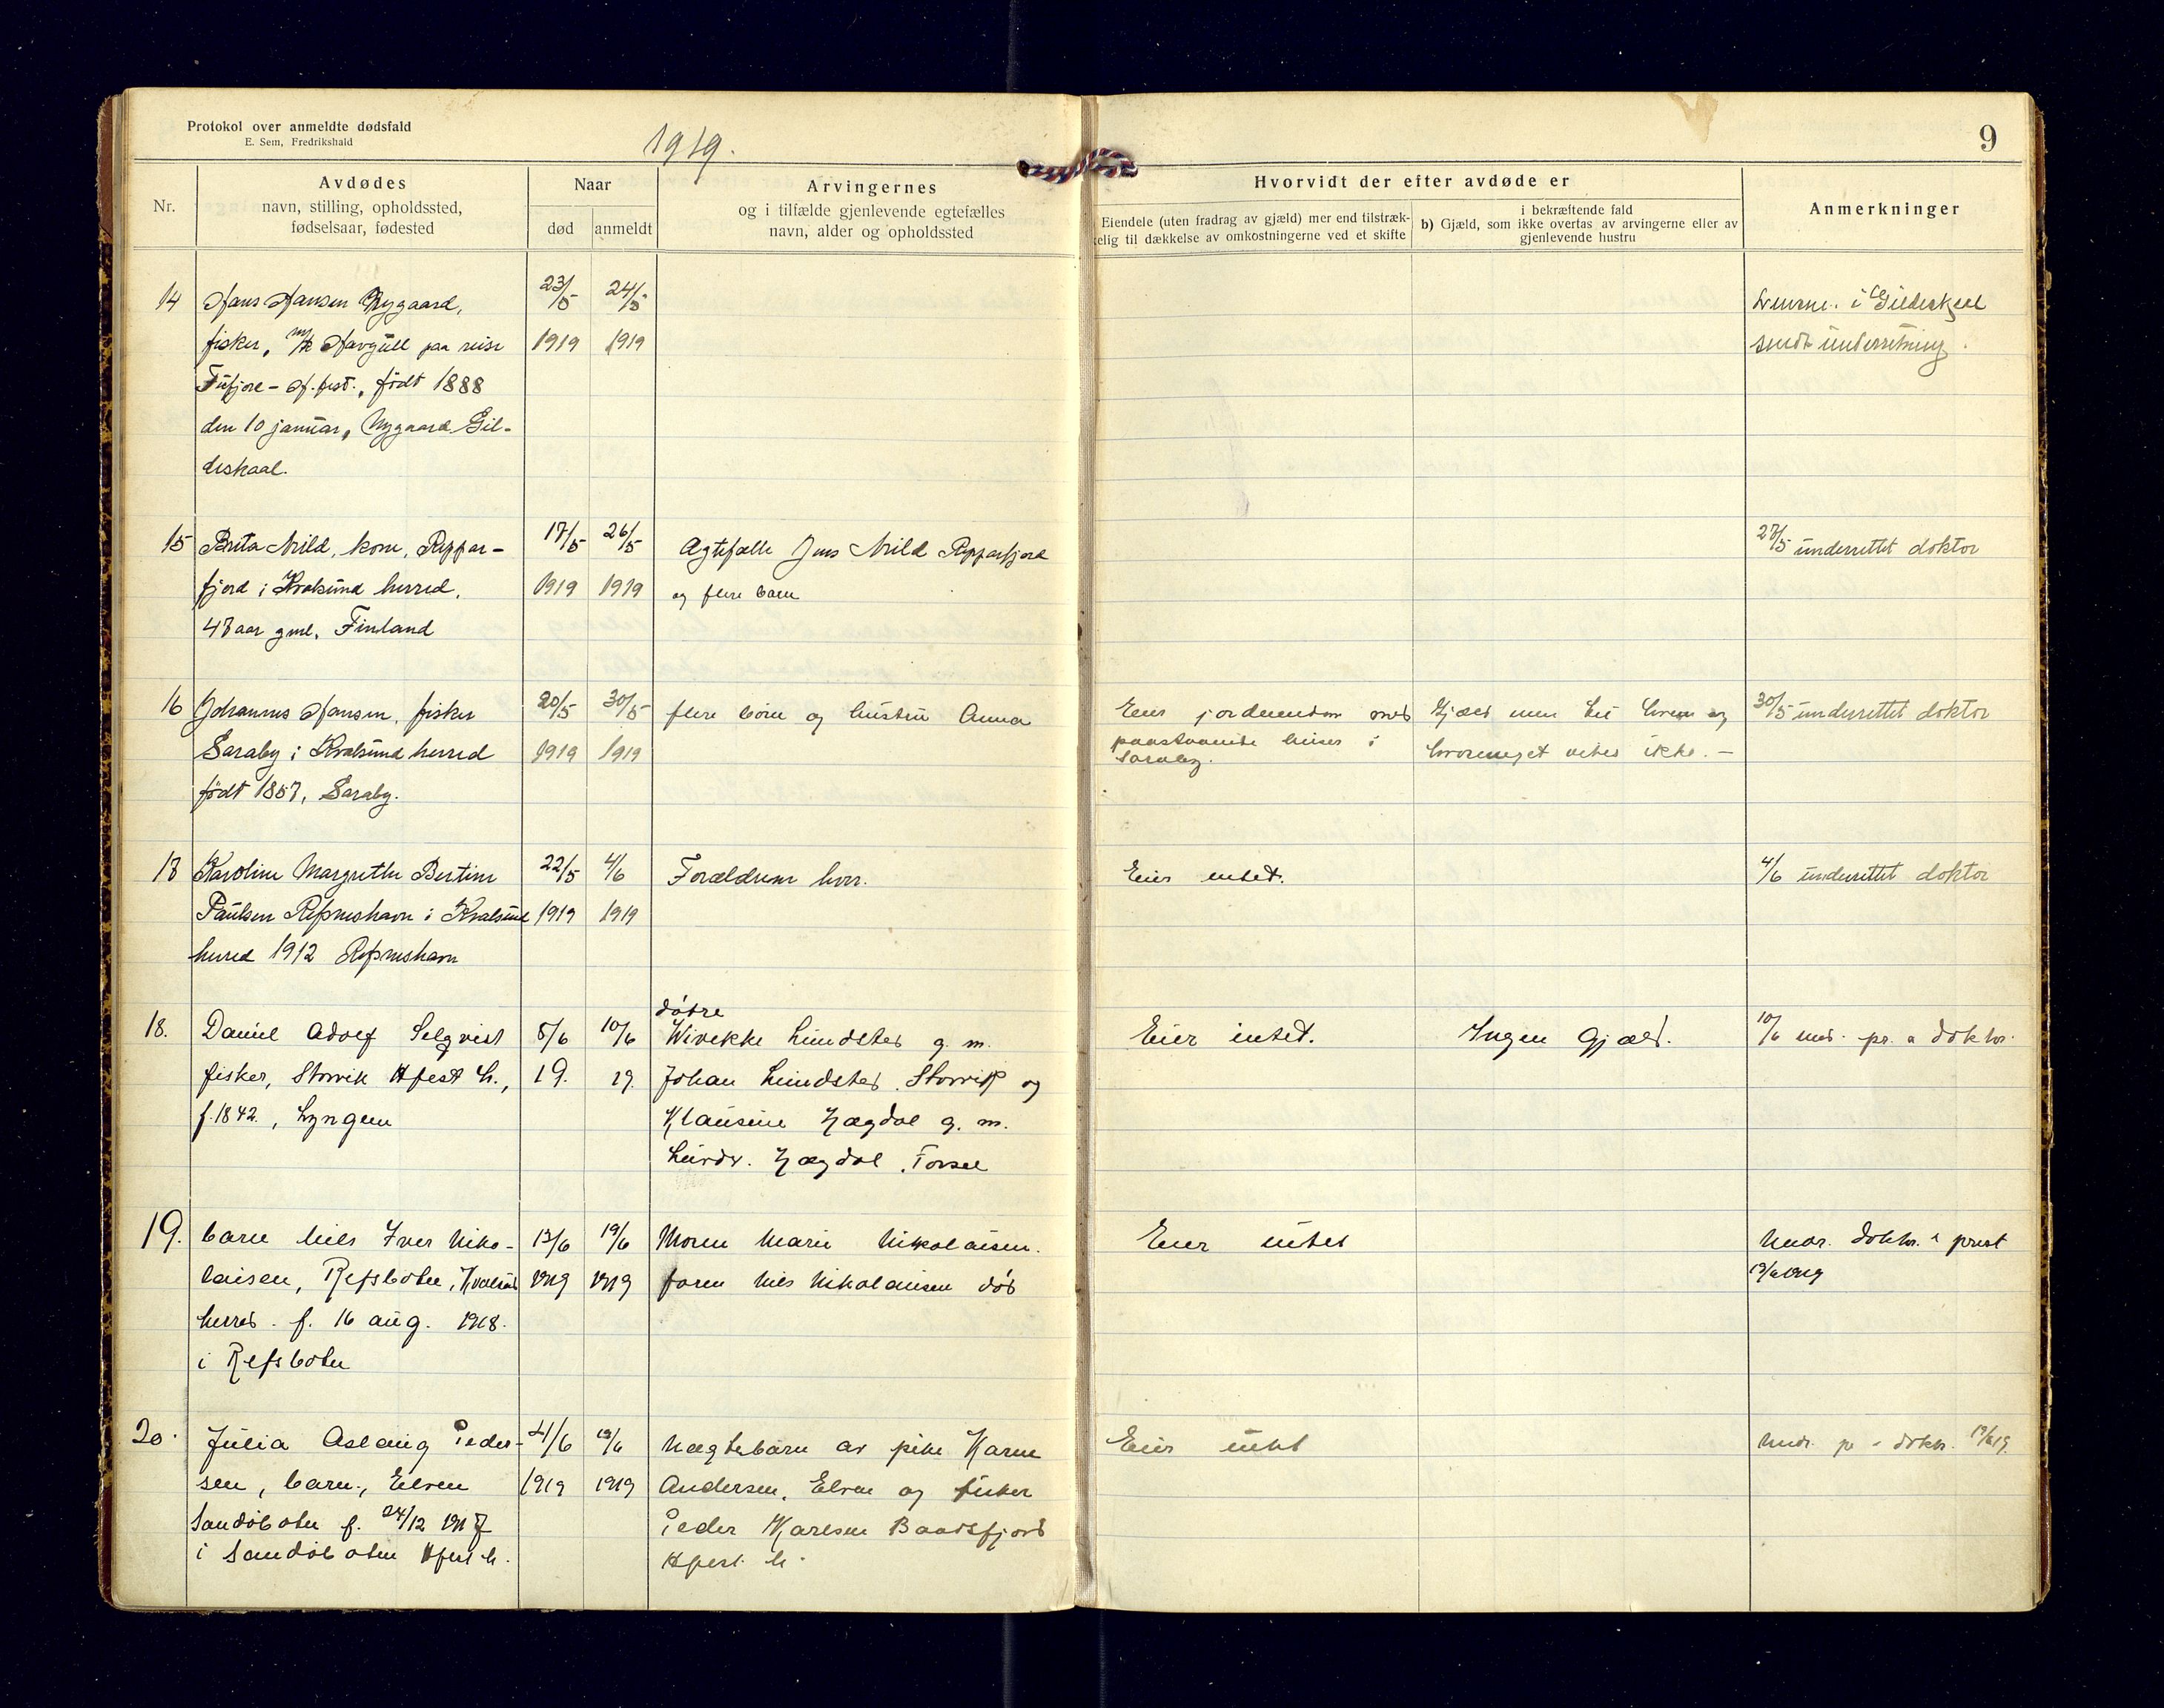 Protokol over anmeldte dødsfald
E. Sem, Fredrikshald
1919.
9
Nr.
Avdødes
navn, stilling, opholdssted,
fødselsaar, fødested
Naar
død
anmeldt
Arvingernes
og i tilfælde gjenlevende egtefælles
navn, alder og opholdssted
Hvorvidt der efter avdøde er
Eiendele (uten fradrag av gjæld) mer end tilstræk-
kelig til dækkelse av omkostningerne ved et skifte
i bekræftende fald
b) Gjæld, som ikke overtas av arvingerne eller av
gjenlevende hustru
Anmerkninger
14
Hans Hansen Nygaard,
fisker, m/k Havgull paa reise
Tufjore - H.fest., født 1888
den 10 januar, Nygaard Gil-
deskaal.
23/5
1919
24/5
1919
i Gildeskaal
sendt underretning.
15
Brita Mild, kone, Reppar-
fjord i Kvalsund herred,
47 aar gml. Finland
17/5
1919
26/5
1919
Ægtefælle Jens Mild Repparfjord
og flere barn
27/5 underrettet doktor
16
Johannes Hansen, fisker
Saraby i Kvalsund herred
født 1857, Saraby.
20/5
1919
30/5
1919
flere børn og hustru Anna
Eier jordeiendom med
paastaaende huser i
Saraby.
Gjæld men til hvem og
hvormeget vites ikke. -
30/5 underrettet doktor
17
Karoline Margrethe Bertine
Paulsen Repneshavn i Kvalsund
herred 1912 Repneshavn
22/5
1919
4/6
1919
Forældrene herr.
Eier intet.
4/6 underrettet doktor
18.
Daniel Adolf Selqvist
fisker, Storvik Hfest h.,
f. 1842., Lyngen
8/6
19.
10/6
19.
døtre
Wivekke Lundsted g. m.
Johan Lundsted, Storvik og
Klausine Hægdal g. m.
Hægdal, Torsdal
Eier intet.
Ingen Gjæld.
10/6 und. pr. & doktor.
19.
barn Nils Iver Niko-
laisen, Refsboten, Kvalsund
herred. f. 16 aug. 1918.
i Refsboten
13/6
1919
19/6
1919
Moren Marie Nikolaisen.
faren Nils Nikolaisen død
Eier intet
Undr. doktor. & prest
19/6 1919
20.
Julia Aslaug Peder-
sen, barn, Elven
Sandøboten f. 24/12 1917
i Sandøboten Hfest h.
4/6
1919
19/6
1919
Uægtebarn av pike Karen
Andersen, Elven og fisker
Peder Karlsen Baadsfjord
Hfest. h.
Eier intet
Undr. pr & doktr. 19/6 19.